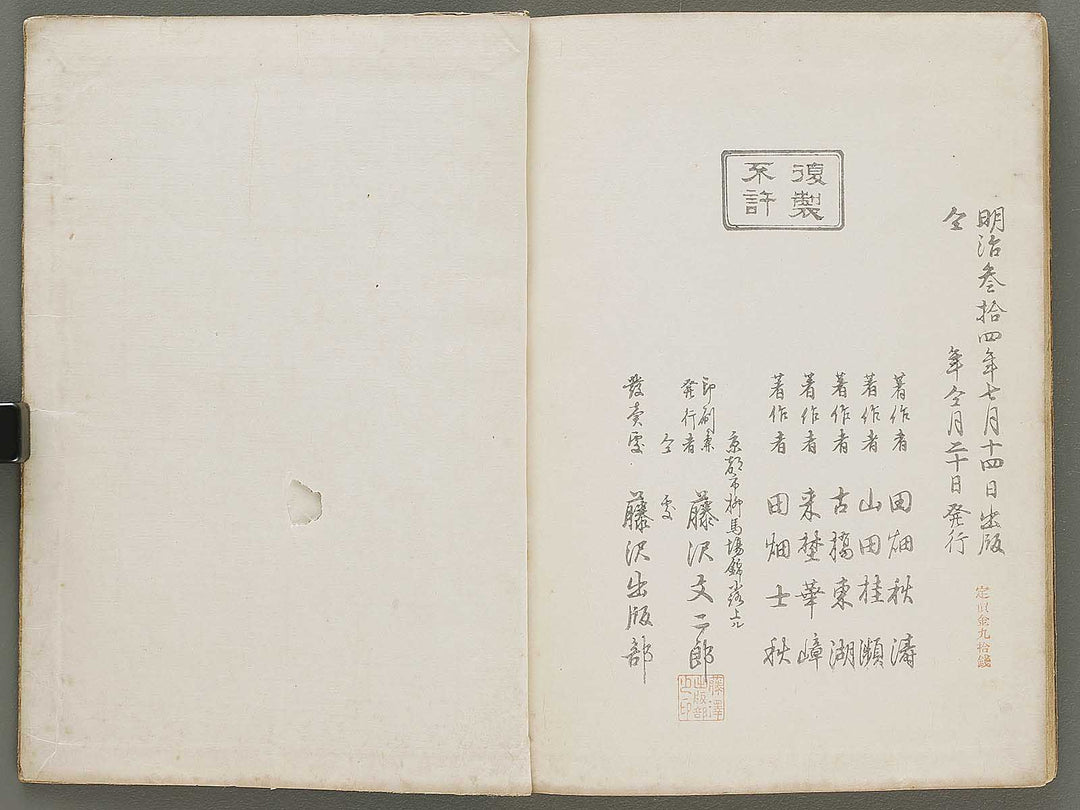 明治叁拾四年七月十四日出版
仝年仝月二十日発行
定價金九拾錢
復製
不許
著作者 田畑秋濤
著作者 山田桂瀬
著作者 古橋東湖
著作者 来埜華嶂
著作者 田畑士秋
京都市柳馬場錦小路上ル
印刷兼
発行者 藤沢文二郎
仝處
發賣處 藤沢出版部
藤澤
出版部
之印